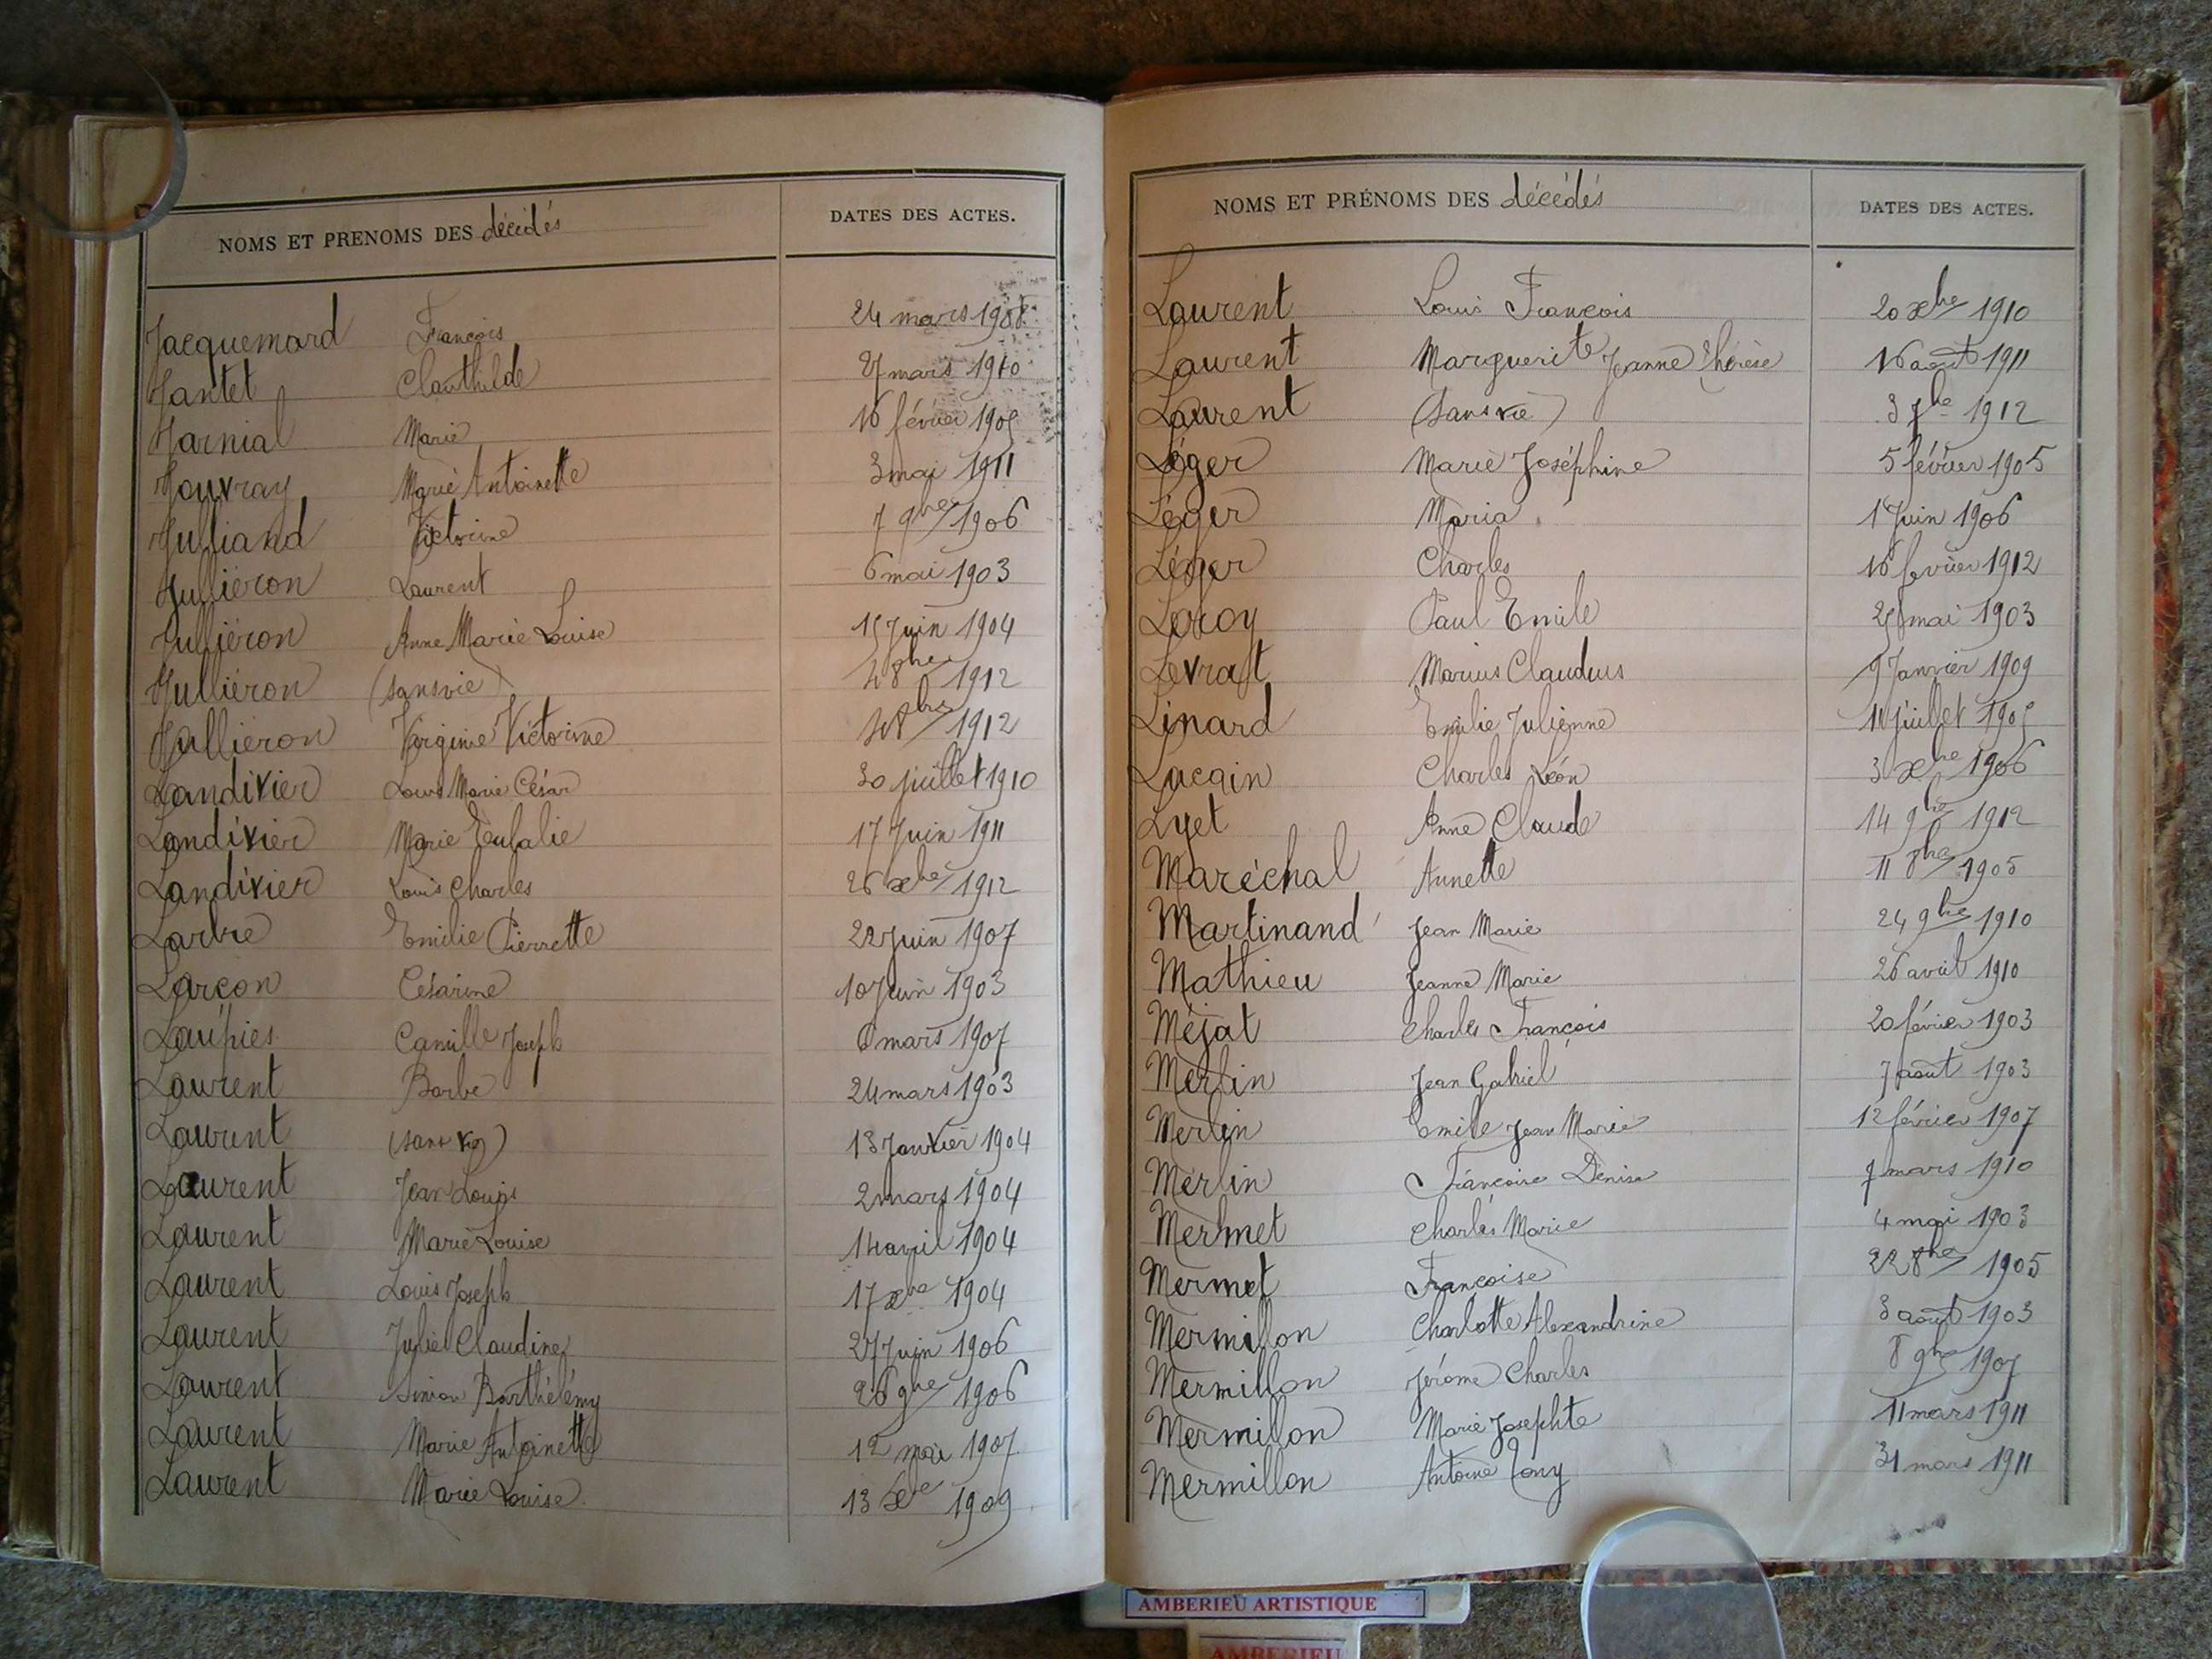 NOMS ET PRENOMS DES décédés DATES DES ACTES.
Jacquemard François 24 mars
Jantet Clauthilde 27 mars 1910
Jarnial Marie 16 février 1905
Jouvray Marie Antoinette 3 mai 1911
Julliand Victorine 7 9bre 1906
Julliéron Laurent 6 mai 1903
Julliéron Anne Marie Louise 15 Juin 1904
Julliéron (sans vie) 8bre 1912
Julliéron Virginie Victorine 8bre 1912
Landivier Louis Marie César 30 juillet 1910
Landivier Marie Eulalie 17 Juin 1911
Landivier Louis Charles 26 xbre 1912
Larbre Emilie Pierrette 22 Juin 1907
Larçon Césarine 10 Juin 1903
Laupies Camille Joseph 6 mars 1907
Laurent Barbe 24 mars 1903
Laurent (sans vie) 13 Janvier 1904
Laurent Jean Louis 2 mars 1904
Laurent Marie Louise 14 avril 1904
Laurent Louis Joseph 17 xbre 1904
Laurent Julie Claudine 27 Juin 1906
Laurent Simon Barthélémy 26 9bre 1906
Laurent Marie Antoinette 12 mai 1907
Laurent Marie Louise 13 xbre 1909
NOMS ET PRÉNOMS DES décédés DATES DES ACTES.
Laurent Louis François 20 xbre 1910
Laurent Marguerite Jeanne Thérèse 16 août 1911
Laurent (sans vie) 3 7bre 1912
Léger Marie Joséphine 5 février 1905
Léger Maria 1 Juin 1906
Léger Charles 16 février 1912
Leroy Paul Emile mai 1903
Levrat Marius Claudius 9 Janvier 1909
Linard Emilie Julienne 11 juillet 1905
Lucain Charles Léon 3 xbre 1906
Lyet Anne Claude 14 9bre 1912
Maréchal Annette 11 8bre 1905
Martinand Jean Marie 24 9bre 1910
Mathieu Jeanne Marie 26 avril 1910
Méjat Charles François 20 février 1903
Merlin Jean Gabriel 7 août 1903
Merlin Emile Jean Marie 12 février 1907
Merlin Françoise Denise 7 mars 1910
Mermet Charles Marie 4 mai 1903
Mermet Françoise 22 8bre 1905
Mermillon Charlotte Alexandrine 3 août 1903
Mermillon Jérôme Charles 8 9bre 1907
Mermillon Marie Josephte 11 mars 1911
Mermillon Antoine Tony 31 mars 1911
AMBERIEU ARTISTIQUE
AMBERIEU